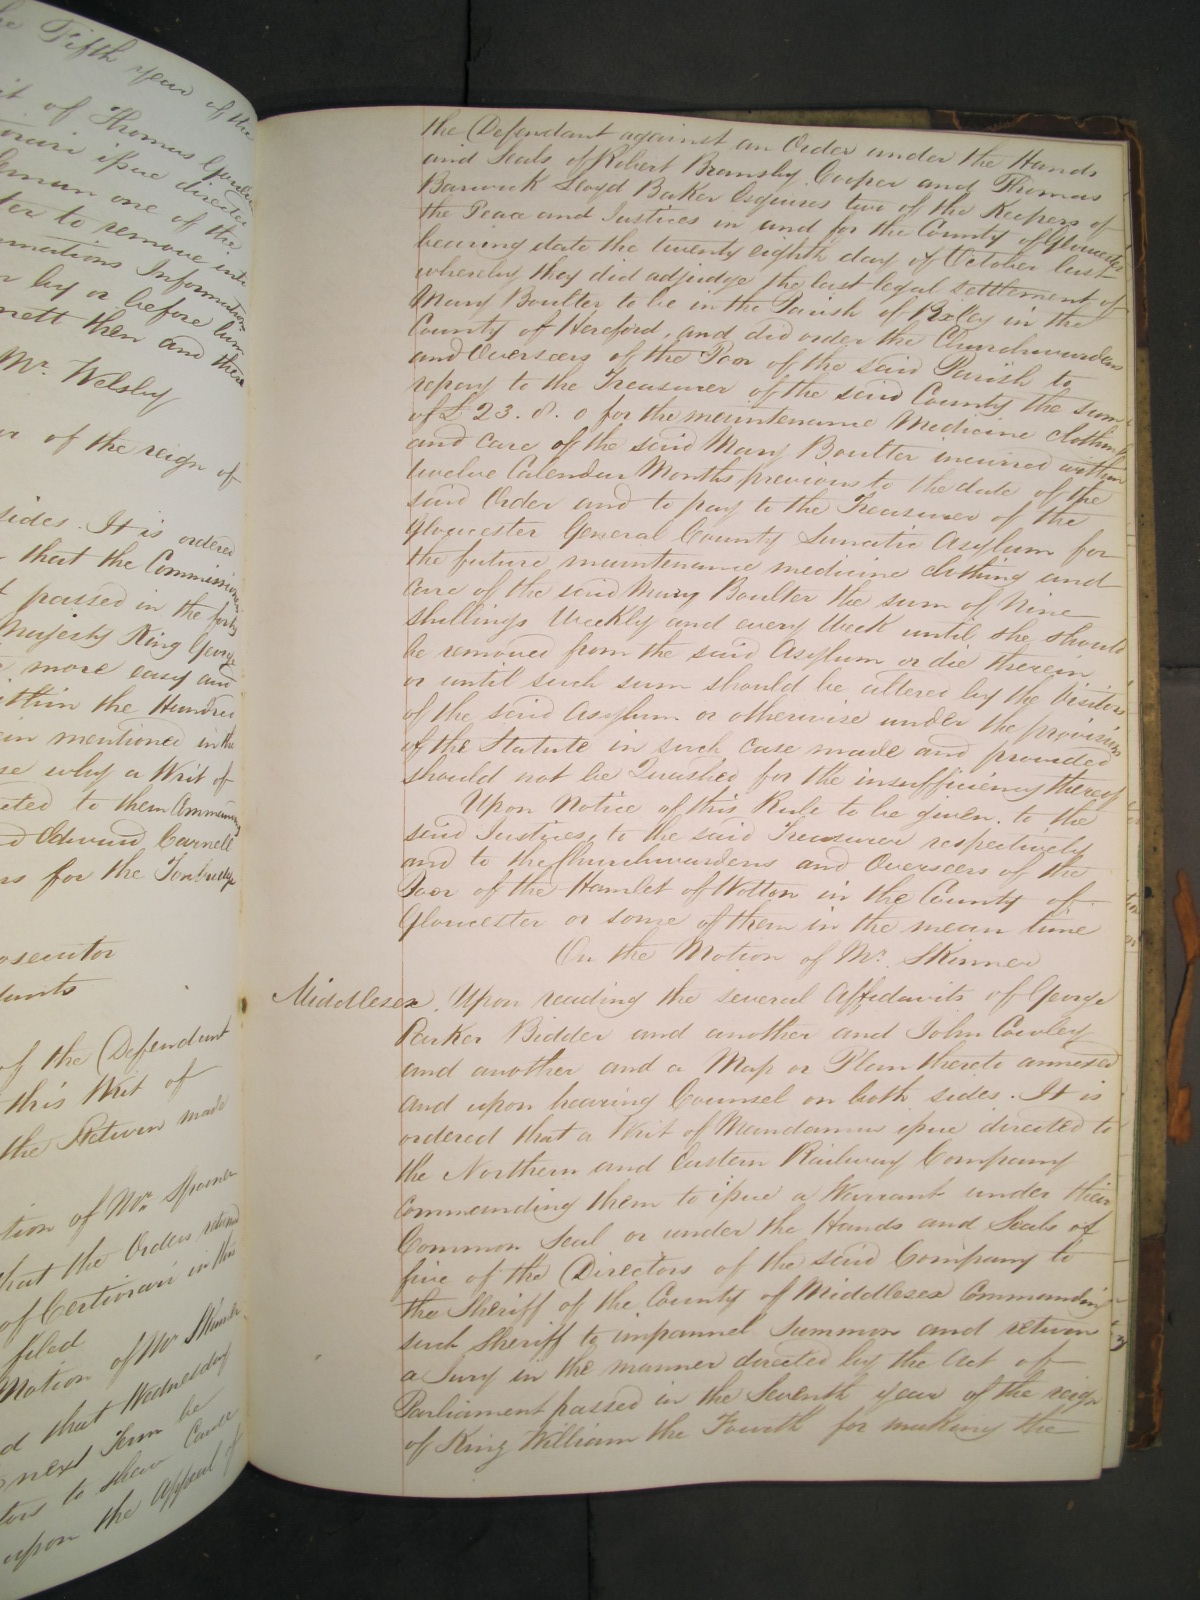 he Fifth year of the
it of Thomas
issue directed
one of the
ter to remove into
Informations
r by or before him
nett then and there
Mr. Welsby
r of the reign of
sides. It is ordered
that the Commissioners
t passed in the forty
Majesty King George
more easy and
ithin the Hundred
ein mentioned in the
se why a Writ of
cted to them Commanding
d Edward Carnell
rs for the Tonbridge
osecutor
dants
of the Defendant
this Writ of
the Return made
tion of Mr. Spooner
that the Orders returned
of Certiorari in this
filed
Motion of Mr Skinner
d that Wednesday
next Term be
tors to shew Cause
upon the Appeal of
the Defendant against an Order under the Hands
and Seals of Robert Bransby Cooper and Thomas
Barwick Lloyd Baker Esquires two of the Keepers of
the Peace and Justices in and for the County of Gloucester
bearing date the twenty eighth day of October last
whereby they did adjudge the last legal settlement of
Mary Boulter to be in the Parish of in the
County of Hereford, and did order the Churchwardens
and Overseers of the Poor of the said Parish to
repay to the Treasurer of the said County the sum
of £23. 8. 0 for the maintenance Medicine clothing
and care of the said Mary Boulter incurred within
twelve Calendar Months previous to the date of the
said Order and to pay to the Treasurer of the
Gloucester General County Lunatic Asylum for
the future maintenance medicine clothing and
care of the said Mary Boulter the sum of Nine
shillings Weekly and every Week until she should
be removed from the said Asylum or die therein
or until such sum should be altered by the Visitors
of the said Asylum or otherwise under the provisions
of the Statute in such case made and provided
should not be Quashed for the insufficiency thereof
Upon Notice of this Rule to be given to the
said Justices, to the said Treasurer respectively
and to the Churchwardens and Overseers of the
Poor of the Hamlet of Wotton in the County of
Gloucester or some of them in the mean time
On the Motion of Mr. Skinner
Middlesex. Upon reading the several Affidavits of George
Parker Bidder and another and John Cowley
and another and a Map or Plan thereto annexed
and upon hearing Counsel on both sides. It is
ordered that a Writ of Mandamus issue directed to
the Northern and Eastern Railway Company
Commanding them to issue a Warrant under their
Common Seal or under the Hands and Seals of
five of the Directors of the said Company to
the Sheriff of the County of Middlesex Commanding
such Sheriff to impannel Summon and return
a Jury in the manner directed by the Act of
Parliament passed in the Seventh year of the reign
of King William the Fourth for making the